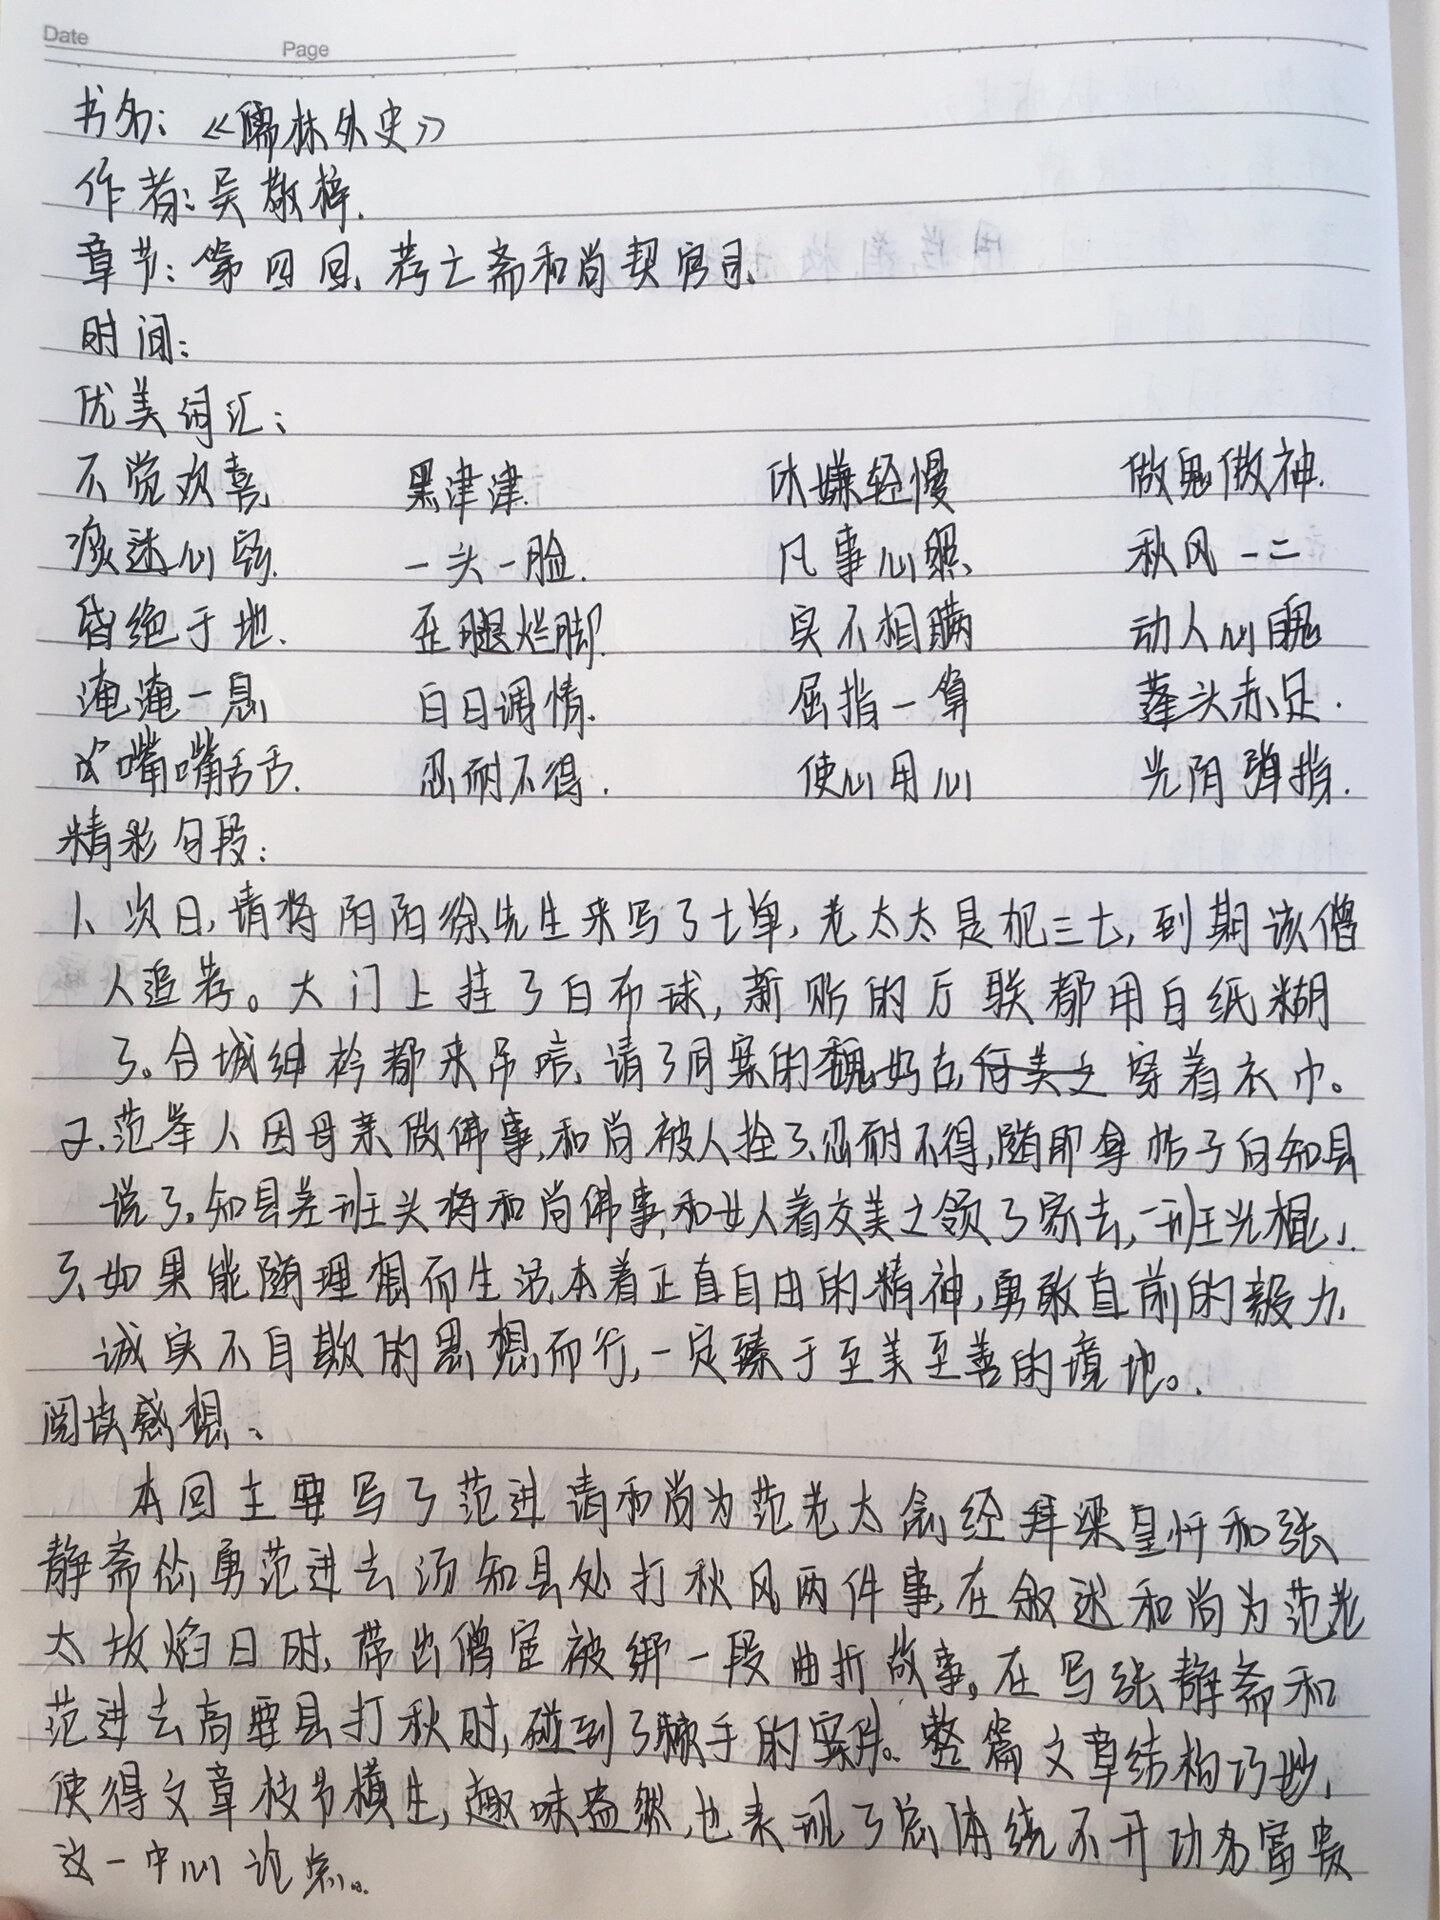 Date
Page
书名：《儒林外史》
作者：吴敬梓.
章节：第四回、荐亡斋和尚契官司、
时间：
优美词汇：
不觉欢喜 黑津津. 休嫌轻慢 做鬼做神.
痰迷心窍. 一头一脸. 凡事心照、 秋风一二
昏绝于地. 歪腿烂脚. 实不相瞒 动人心魄
淹淹一息 白日调情. 屈指一算 蓬头赤足.
嘴嘴舌舌. 忍耐不得. 使心用心 光阴弹指.
精彩句段：
1、次日，请将阴阳徐先生来写了七单，老太太是犯三七，到期该僧
人追荐。大门上挂了白布球，新贴的厅联都用白纸糊
了。合城绅衿都来吊唁、请了同案的魏好古，何美之穿着衣巾。
2.范举人因母亲做佛事，和尚被人拴了忍耐不得，随即拿帖子向知县
说了。知县差班头将和尚佛事，和女人着交美之领了家去，一班光棍
3、如果能随理想而生活，本着正直自由的精神，勇敢直前的毅力、
诚实不自欺的思想而行，一定臻于至美至善的境地。.
阅读感想、
本回主要写了范进请和尚为范老太念经拜梁皇忏和张
静斋怂勇范进去汤知县处打秋风两件事，在叙述和尚为范老
太放焰日时，带出僧官被绑一段曲折故事。在写张静斋和
范进去高要县打秋时，碰到了棘手的案件。整篇文章结构巧妙，
使得文章枝节横生，趣味盎然，也表现了总体绕不开功名富贵
这一中心论点。